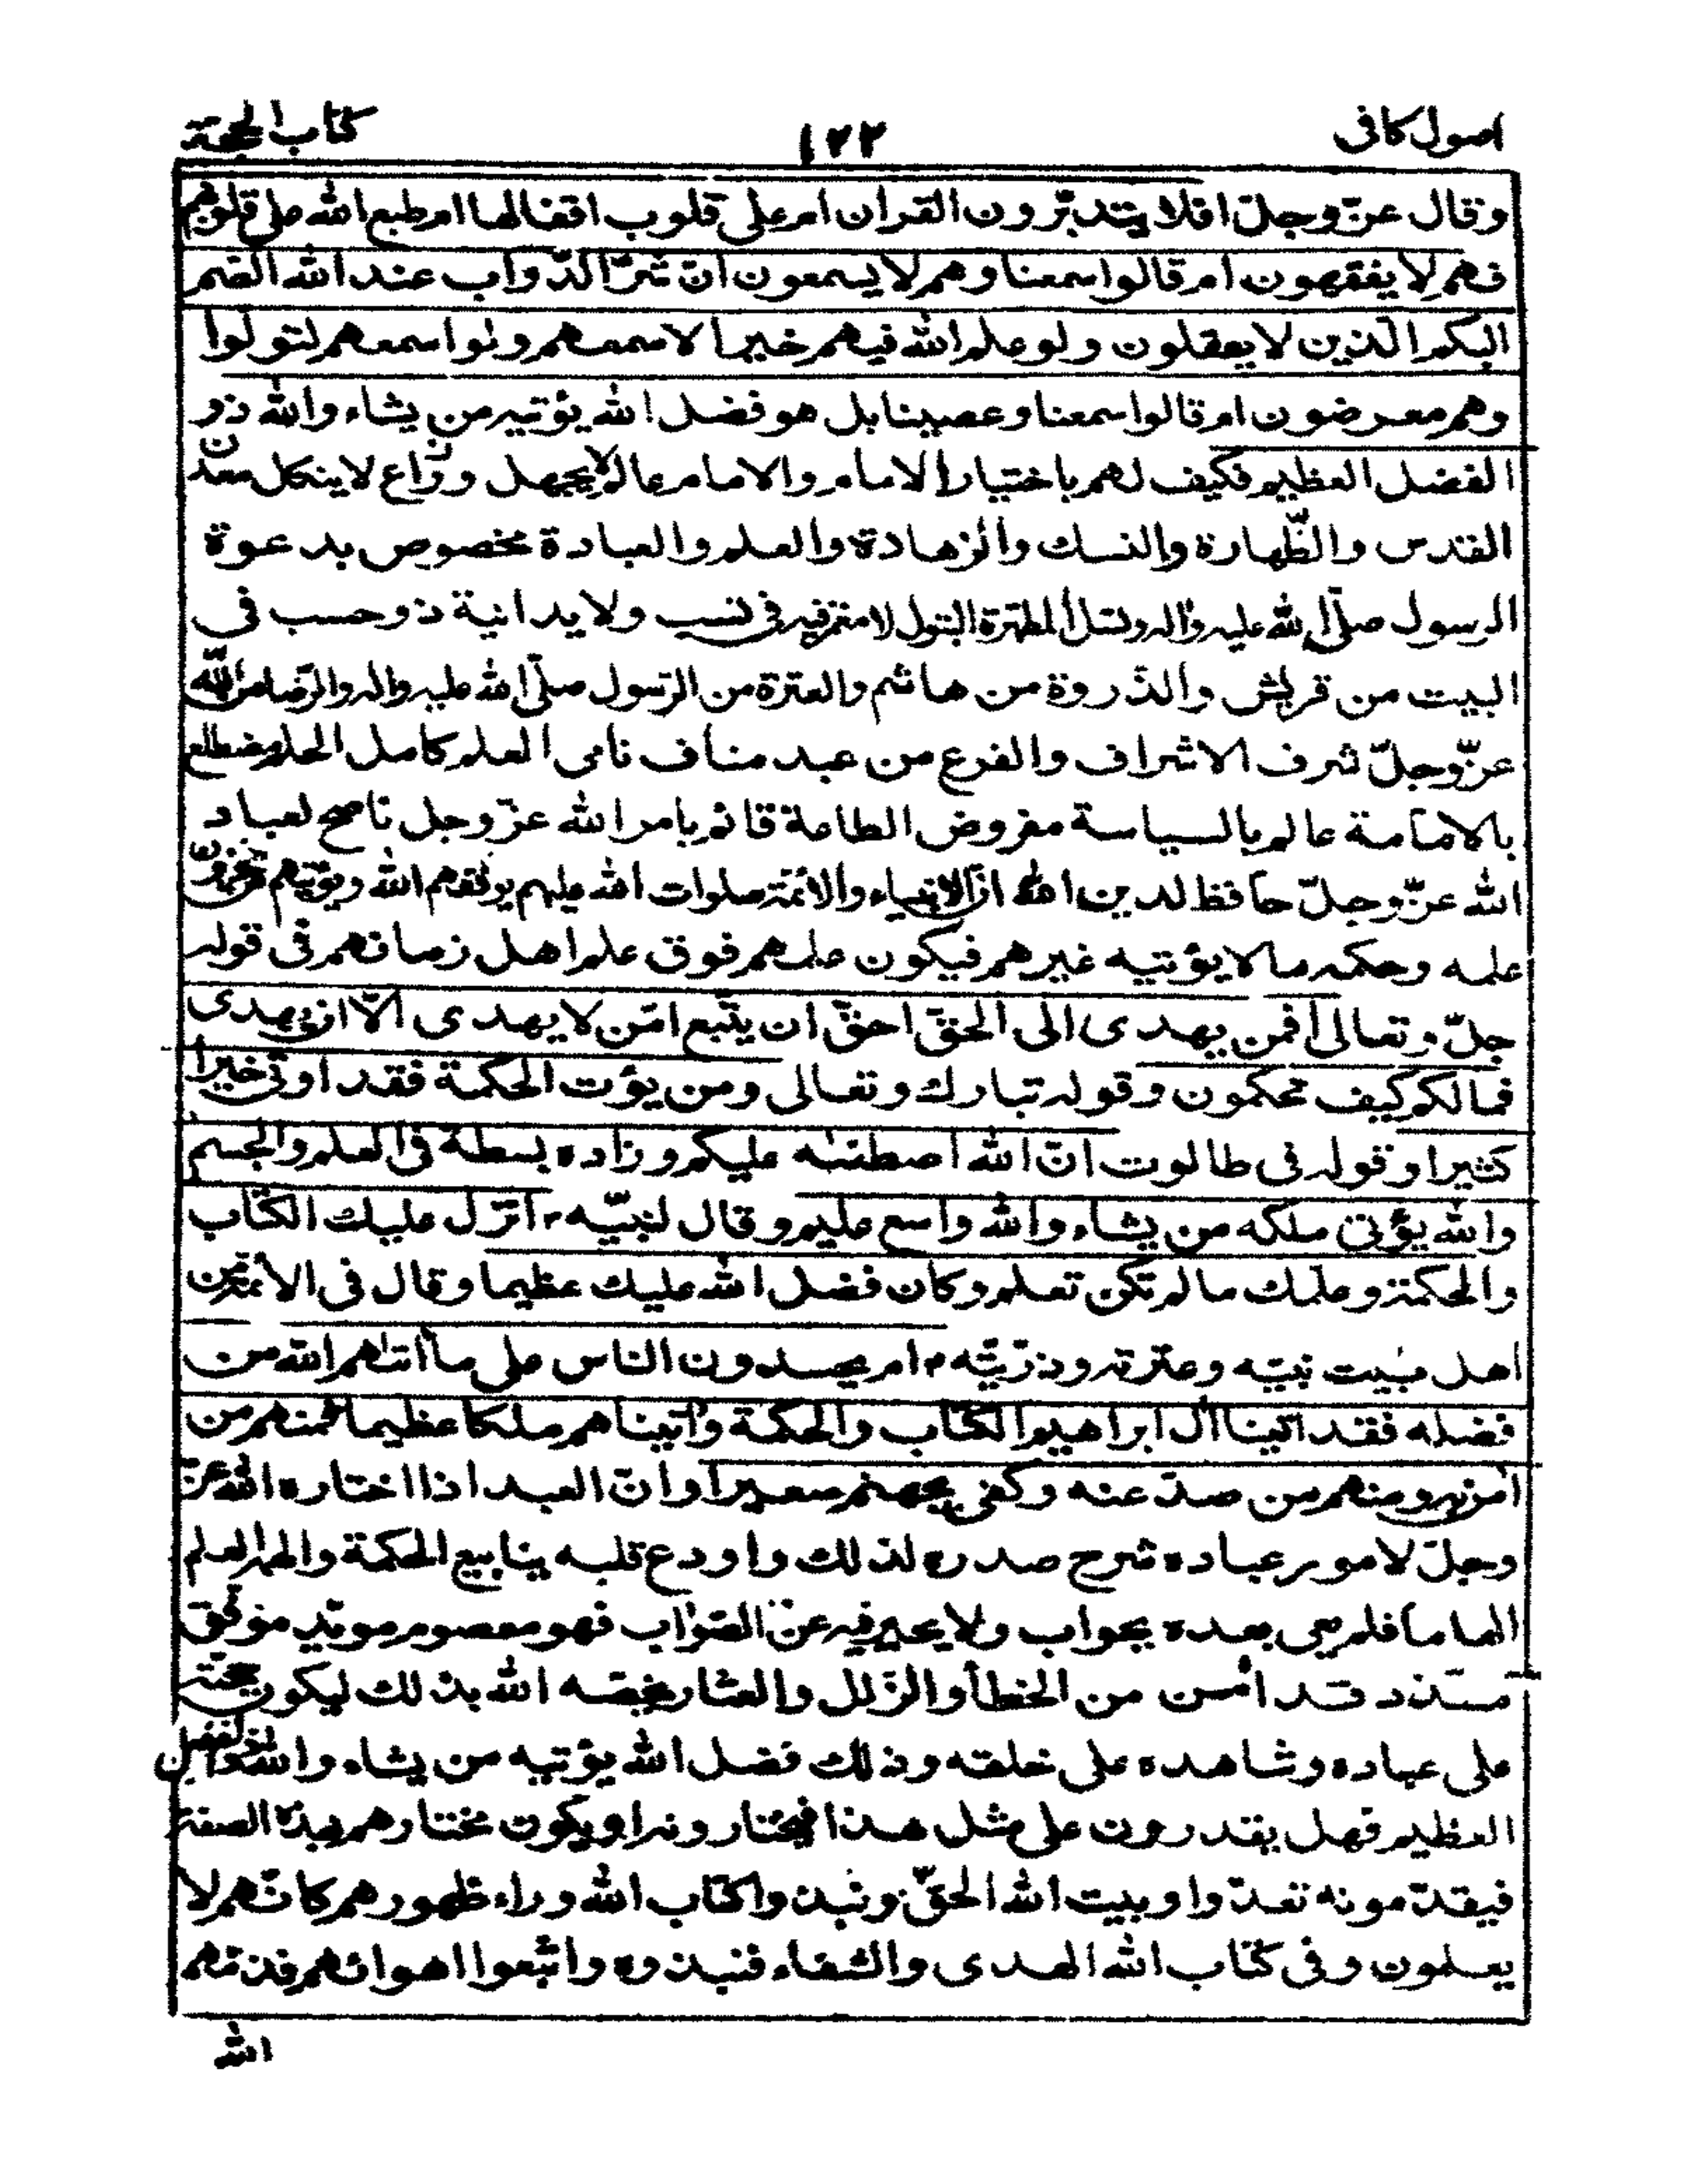 اصول كافى
١٢٢
كتاب الحجة
وقال عزّ وجلّ افلا يتدبّرون القران ام على قلوب اقفالها ام طبع الله على قلوبهم
فهم لا يفقهون ام قالوا سمعنا وهم لا يسمعون انّ شرّ الدّواب عند الله الصّم
البكم الّذين لا يعقلون ولو علم الله فيهم خيرا لاسمعهم ولوا سمعهم لتولوا
وهم معرضون ام قالوا سمعنا وعصينا بل هو فضل الله يؤتيه من يشاء والله ذو
الفضل العظيم فكيف لهم باختيار الامام والامام عالم لا يجهل وراع لا ينكل معدن
القدس والطّهارة والنسك والزهادة والعلم والعبادة مخصوص بدعوة
الرسول صلّى الله عليه واله ونسل المطهّرة البتول لا مغمز فيه فى نسب ولا يدانية ذو حسب فى
البيت من قريش والذّروة من هاشم والعترة من الرّسول صلّى الله عليه واله والرّضا من الله
عزّ وجلّ شرف الاشراف والفرع من عبد مناف نامى العلم كامل الحلم مضطلع
بالامامة عالم بالسياسة مفروض الطاعة قائم بامر الله عزّ وجل ناصح لعباد
الله عزّ وجلّ حافظ لدين الله انّ الانبياء والأئمّة صلوات الله عليهم يوفّقهم الله ويؤتيهم من مخزون
علمه وحكمه ما لا يؤتيه غيرهم فيكون علمهم فوق علم اهل زمانهم فى قوله
جلّ وتعالى أفمن يهدى الى الحقّ احقّ ان يتّبع امّن لا يهدى الّا ان يهدى
فمالكم كيف تحكمون وقوله تبارك وتعالى ومن يؤت الحكمة فقد اوتى خيرا
كثيرا وقوله فى طالوت انّ الله اصطفىٰه عليكم وزاده بسطة فى العلم والجسم
والله يؤتى ملكه من يشاء والله واسع عليم وقال لنبيّه ص انزل عليك الكتاب
والحكمة وعلمك ما لم تكن تعلم وكان فضل الله عليك عظيما وقال فى الأئمة من
اهل بيت نبيّه وعترته وذرّيّته ص ام يحسدون الناس على ما أتىٰهم الله من
فضله فقد اتينا أل ابراهيم الكتاب والحكمة وأتيناهم ملكا عظيما فمنهم من
امن به ومنهم من صدّ عنه وكفى بجهنم سعيرا وانّ العبد اذا اختاره الله عزّ
وجلّ لامور عباده شرح صدره لذلك واودع قلبه ينابيع الحكمة والهم العلم
الهاما فلم يعى بعده بجواب ولا يحير فيه عن الصّواب فهو معصوم مويّد موفّق
مسدّد قد امن من الخطأ والزّلل والعثار يخصّه الله بذلك ليكون حجّته
على عباده وشاهده على خلقه وذلك فضل الله يؤتيه من يشاء والله ذو الفضل
العظيم فهل يقدرون على مثل هذا فيختارونه او يكون مختارهم بهذه الصفة
فيقدّمونه تعدّوا وبيت الله الحقّ ونبذوا كتاب الله وراء ظهورهم كانّهم لا
يعلمون وفى كتاب الله الهدى والشفاء فنبذوه واتّبعوا اهوائهم فذمّهم
الله